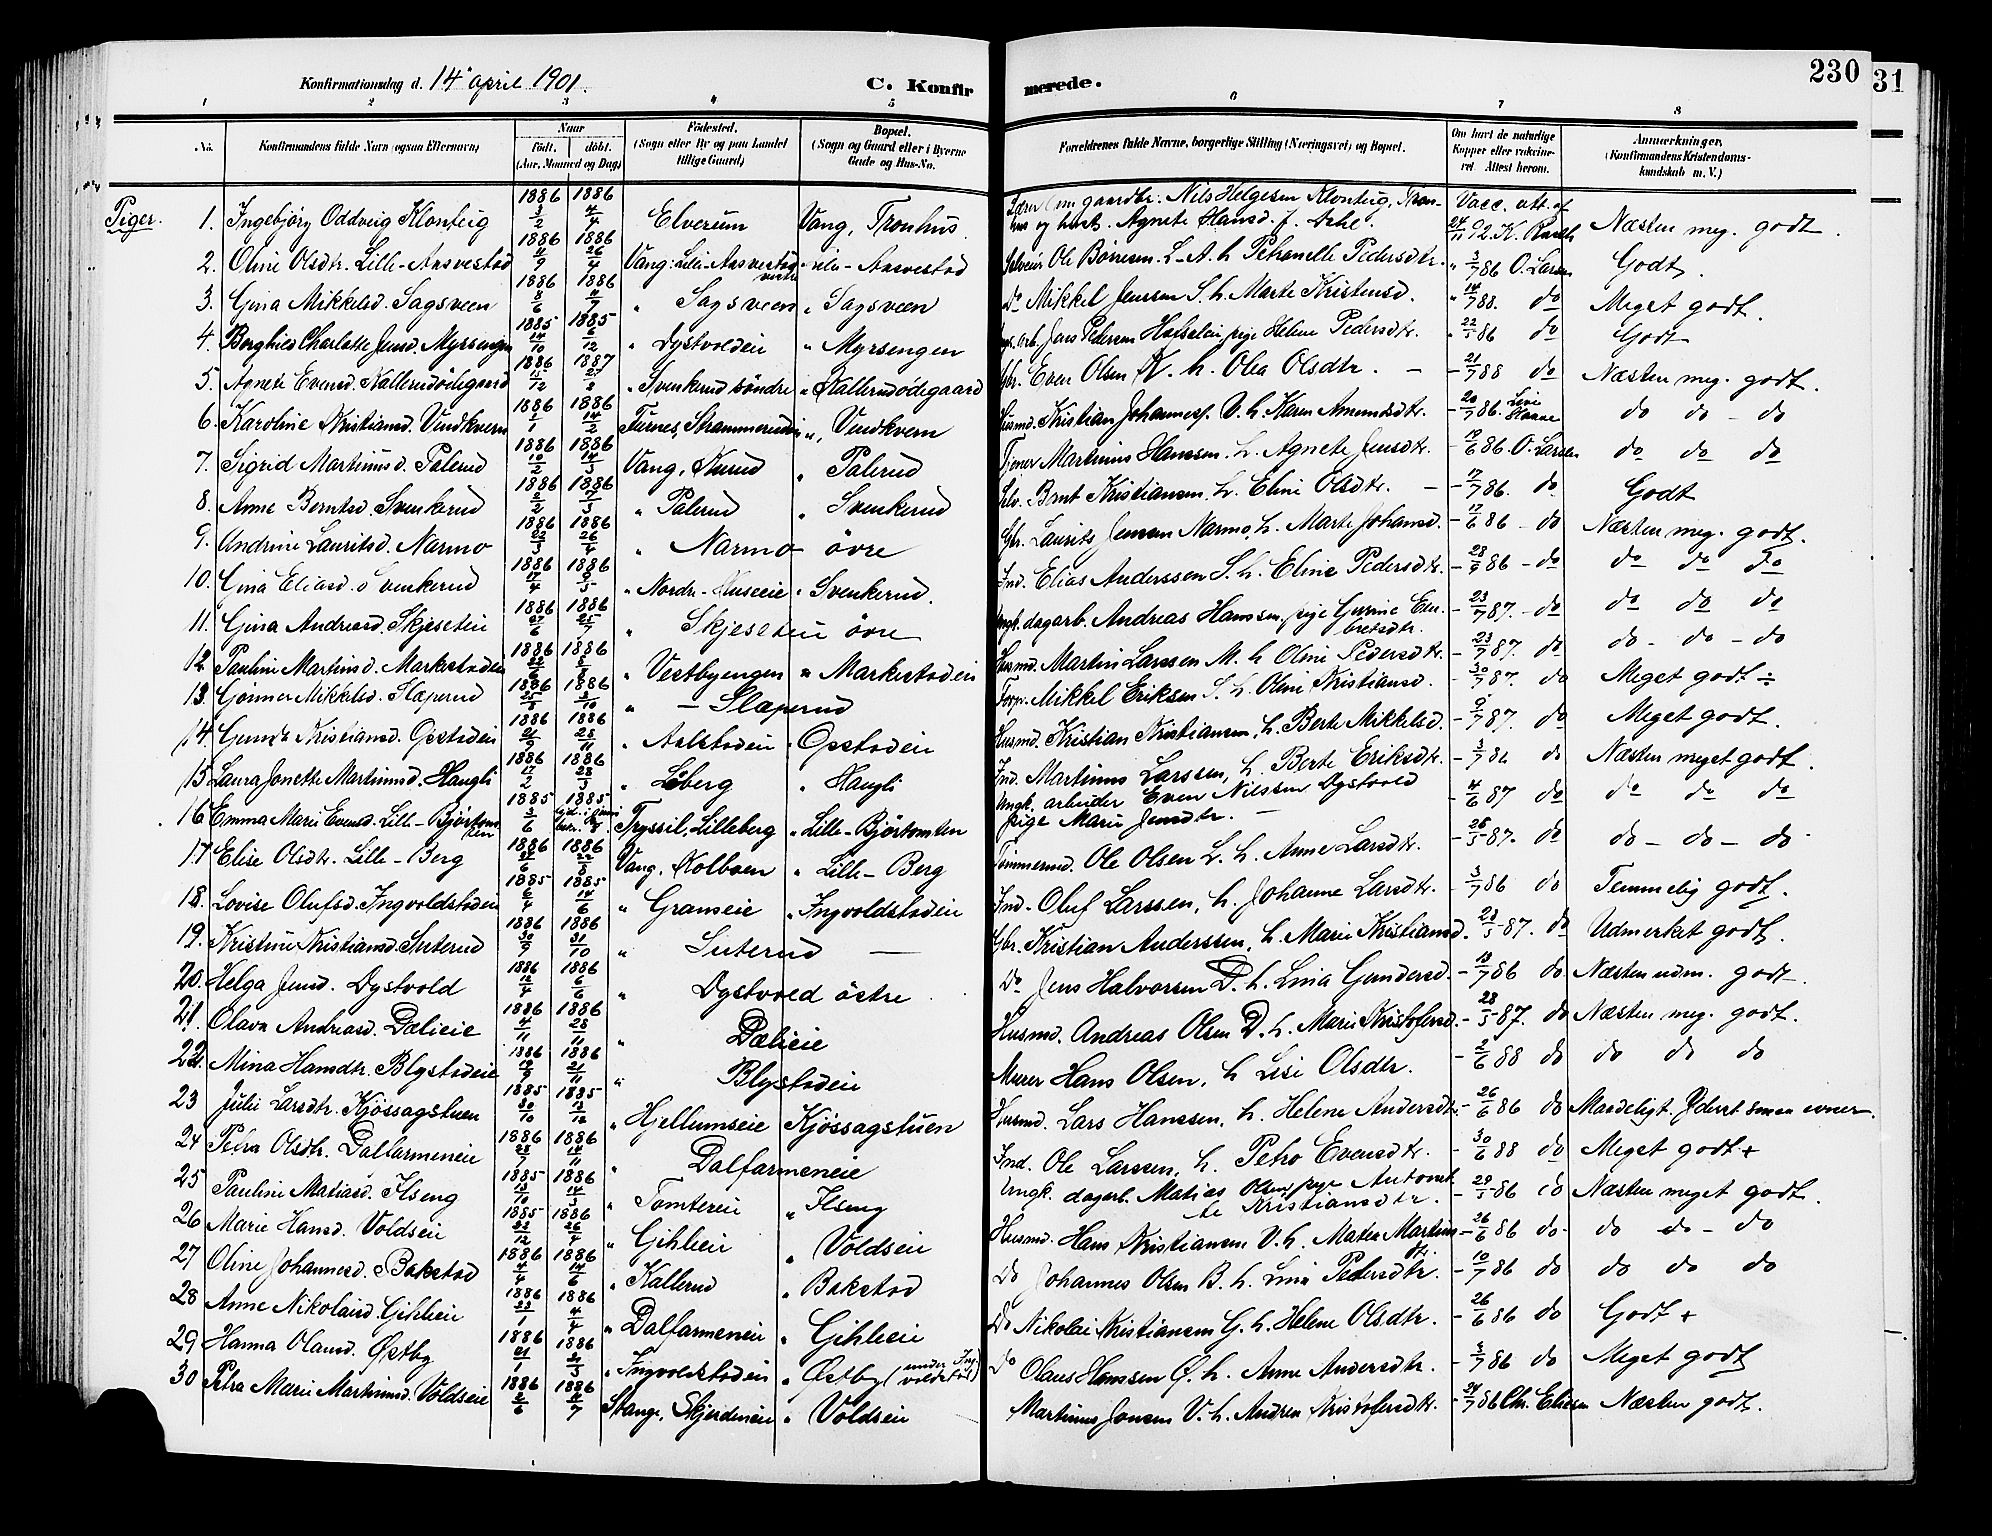 230
31
Konfirmationsdag d. 14 april 1901.
C. Konfirmerede.
1 2 3 4 5 6 7 8
No. Konfirmandens fulde Navn (ogsaa Efternavn) Naar Födt. döbt. (Aar, Maaned og Dag) Födested. (Sogn eller By og paa Landet tillige Gaard) Bopæl. (Sogn og Gaard eller i Byerne Gade og Hus-No. Forældrenes fulde Navne, borgerlige Stilling (Næringsvei) og Bopæl. Om havt de naturlige Kopper eller vakcineret. Attest herom. Anmærkninger, (Konfirmandens Kristendomskundskab m. V.)
Piger.
1. Ingebjörg Oddveig Klonteig 1886 3/2 1886 4/4 Elverum Vang, Tronhus gaardbr. Nils Helgesen Klonteig, Tronhus og hust. Agnete Hansd. f. Vacc. att. af 24/11 92 K. Næsten meg. godt.
2. Oline Olsdtr. Lille-Aasvestad 1886 4/9 1886 26/4 Vang: Lille-Aasvestad Lille-Aasvestad Selveier Ole Börresen L-A. h Petranelle Pedersdtr. 3/7 86 O. Larsen Godt.
3. Gina Mikkelsd. Sagsveen 1886 8/6 1886 4/7 " Sagsveen " Sagsveen Do Mikkel Jenssen S. h. Marte Kristensd. 14/7 88. do Meget godt.
4. Borghild Charlotte Jensd. Myrsengen 1885 14/10 1885 6/12 " Dystvoldeie " Myrsengen Jens Pedersen pige Helene Pedersdtr. 22/5 86 do Godt
5. Agnete Evensd. Kallerudödegaard 1886 1887 " Svenkerud söndre " Kallerudödegaard Gbr. Even Olsen K. h. Olea Olsdtr. 21/7 88 do Næsten meg. godt.
6. Karoline Kristiansd. Vindkvern 1886 1886 14/2 Furnes, Vindkvern Husmd. Kristian Johanness. V. h. Karen Amundsdtr. 20/7 86. do do - do
7. Sigrid Martinusd. Palerud 1886 10/2 1886 14/3 Vang, " Palerud Tjener Martinus Hanssen. h. Agnete Jensdtr. 19/6 86. O. Larsen do do do
8. Anne Berntsd. Svenkerud 1886 2/2 1886 7/3 " Palerud " Svenkerud Selv. Brnt Kristiansen, h. Eline Olsdtr. 17/7 86. do Godt
9. Andrine Lauritsd. Narmo 1886 22/3 1886 26/4 " Narmo övre Gbr. Laurits Jensen Narmo, h. Marte Johansd. 17/6 86 - do Næsten meg. godt.
10. Gina Eliasd. Svenkerud 1886 17/4 1886 9/5 " Nordr.-Huseeie " Svenkerud. Ind. Elias Anderssen S. h. Eline Pedersdtr. 28/9 86 - do do do do
11. Gina Andreasd. Skjeseteie 1886 27/6 1886 25/7 " Skjeseteie övre Ungk. dagarb. Andreas Hanssen, pige Gurine Embretsdtr. 23/7 87. - do do do do
12. Pauline Martinsd. Markestadeie 1886 1886 " Vestbyengen " Markestadeie Husmd. Martin Larssen M. h Oline Pedersdtr. 23/9 87. do do - do - do
13. Gonner Mikkelsd. Slaperud 1886 1886 3/10 " - Slaperud Torp. Mikkel Eriksen S. h. Oline Kristiansd. 30/7 87. do Meget godt ÷
14. Gunda Kristiansd. Opstadeie 1886 21/9 1886 28/11 " Aalstadeie " Opstadeie Husmd. Kristian Kristiansen, h. Berte Mikkelsd. 9/7 87. do Meget godt.
15. Laura Jonette Martinusd. Haugli 1886 17/2 1886 28/3 " Löberg " Haugli Ind. Martinus Larssen, h. Berte Eriksdtr. 3/7 86 do Næsten meget godt.
16 Emma Marie Evensd. Lille-Björtomten 1885 3/6 1885 Tryssil, Lilleberg " Lille-Björtomten Ungk. arbeider Even Nilssen Dystvold pige Marie Jensdtr. 4/6 87 do do do do
17. Elise Olsdtr. Lille-Berg 1886 1886 22/8 Vang, Kolboen " Lille-Berg Tömmermd. Ole Olsen L. h. Anne Larsdtr. 26/5 87. do do - do - do
18. Lovise Olufsd. Ingvoldstadeie 1885 6/4 1885 14/6 " Gramseie " Ingvoldstadeie Ind. Oluf Larssen, h. Johanne Larsdtr. 3/7 86 do Temmelig godt.
19. Kristine Kristiansd. Suterud 1886 30/9 1886 31/10 " Suterud - Gbr. Kristian Anderssen, h. Marie Kristiansd. 28/5 87. do Udmerket godt.
20. Helga Jensd. Dystvold 1886 12/4 1886 6/6 " Dystvold östre Do Jens Halvorsen D. h. Lina Gundersd. 13/7 86 do Næsten udm. godt.
21. Olava Andreasd. Dælieie 1886 4/11 1886 28/11 " Dælieie Husmd. Andreas Olsen D. h. Marie Kristofersd. 28/5 87. do Næsten meg. godt.
22. Mina Hansdtr. Blystadeie 1886 19/9 1886 21/11 " Blystadeie Murer Hans Olsen, h Lise Olsdtr. 2/6 88 do do do do
23 Julie Larsdtr. Kjössagstuen 1885 30/10 1885 13/12 " Hjellumseie Kjössagstuen Husmd. Lars Hanssen, h. Helene Andersdtr. 26/6 86 do Maadeligt. Yderst smaa evner.
24 Petra Olsdtr. Dalfarmeneie 1886 1886 14/11 " Dalfarmeneie Ind. Ole Larssen, h. Petro Evensdtr. 30/6 88 do Meget godt +
25 Pauline Matiasd. Ilseng 1885 13/10 1886 14/3 " Tomtereie " Ilseng Ungk. dagarb. Matias Olsen, pige Antonette Kristiansdtr. 29/5 86 do Næsten meget godt.
26 Marie Hansd. Voldseie 1885 22/12 1886 26/4 " Gihleie " Voldseie Husmd. Hans Kristiansen V. h. Matea Martinsdtr. 26/6 86 do do do - do
27 Oline Johannesd. Bakstad 1886 4/4 1886 14/6 " Kallerud " Bakstad Do Johannes Olsen B. h. Lina Pedersdtr. 10/7 86 do do do do
28 Anne Nikolaisd. Gihleie 1886 23/1 1886 4/4 " Dalfarmeneie " Gihleie Do Nikolai Kristiansen G. h. Helene Olsdtr. 26/6 86 do Godt +
29 Hanna Olausd. Østby 1886 21/1 1886 21/3 " Ingvoldstadeie " Østby (under Ingvoldstad) Do Olaus Hanssen Ø. h. Anne Andersdtr. 3/7 86 do Meget godt
30 Petra Marie Martinusd. Voldseie 1886 2/6 1886 4/7 Stange, Skjerdeneie " Voldseie Martinus Jonsen V. h. Andrea Kristofersdtr. 24/7 86 Chr. Eliesen Næsten godt.